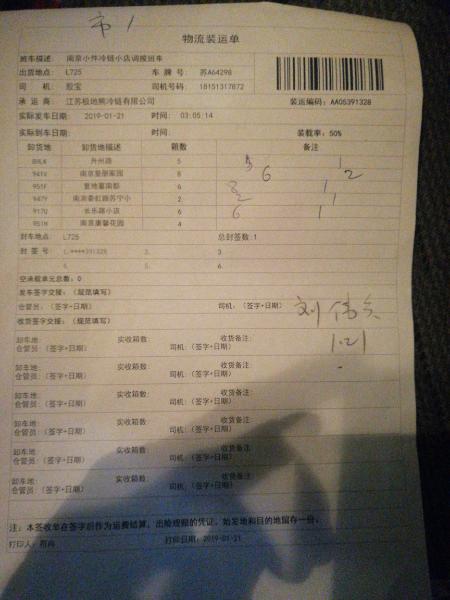 市1
物流装运单
班车描述: 南京小件冷链小店调拨班车
出货地点: L725 车牌号 苏A64298
司机: 殷宝 司机号码: 18151317872
承运商: 江苏极地熊冷链有限公司 装运编码: AA05391328
实际发车日期: 2019-01-21 时间: 03:05:14
实际到车日期: 时间: 装载率: 50%
卸货地 卸货地描述 箱数 备注
舟州路 5 5 1
941V 南京显朋家园 8 6 2
951F 复地宴南都 6 1
947Y 南京泰虹路苏宁小 2 2 1
917U 长乐路小店 6 6 1
951N 南京康馨花园 4
封车地点: L725 总封签数: 1
封签号 1.****391328 2. 3.
4. 5. 6.
空承载单元总数: 0
发车签字交接: (规范填写)
仓管员: (签字+日期) 司机: (签字+日期) 刘伟
收货签字交接: (规范填写) 1.21
卸车地: 实收箱数: 收货备注:
仓管员: (签字+日期) 司机: (签字+日期)
卸车地: 实收箱数: 收货备注:
仓管员: (签字+日期) 司机: (签字+日期)
卸车地: 实收箱数: 收货备注:
仓管员: (签字+日期) 司机: (签字+日期)
卸车地: 实收箱数: 收货备注:
仓管员: (签字+日期) 司机: (签字+日期)
卸车地: 实收箱数: 收货备注:
仓管员: (签字+日期) 司机: (签字+日期)
卸车地: 实收箱数: 收货备注:
仓管员: (签字+日期) 司机: (签字+日期)
注: 本签收单在签字后作为运费结算、出险理赔的凭证，始发地和目的地留存一份。
打印人: 打印日期: 2019-01-21